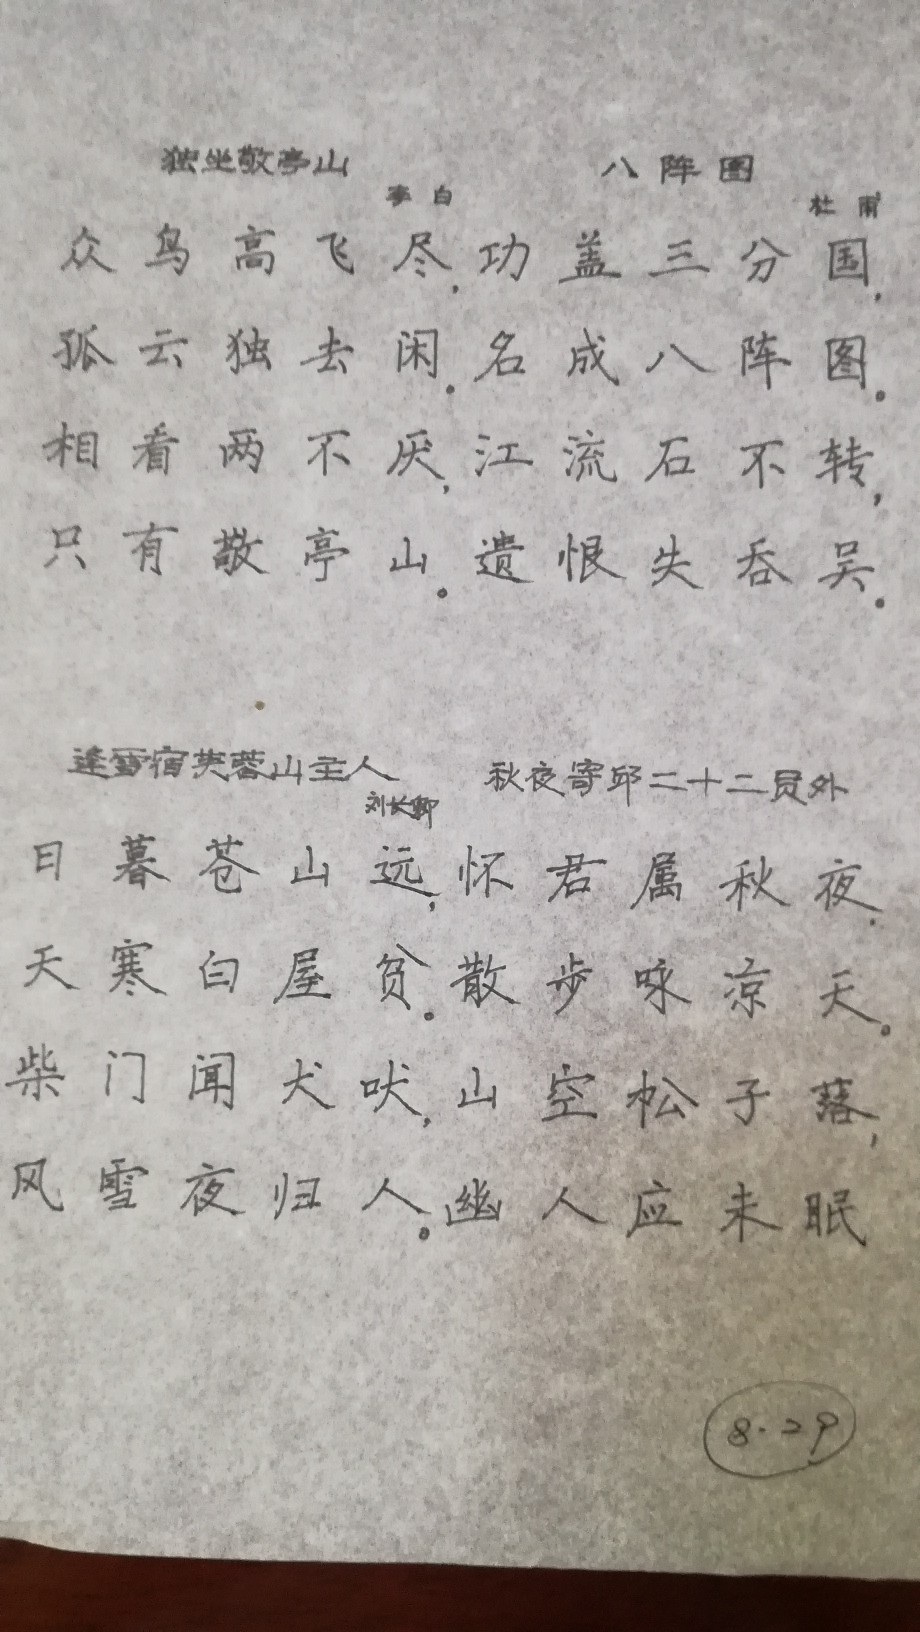 独坐敬亭山
李白
众鸟高飞尽,
孤云独去闲。
相看两不厌,
只有敬亭山。
八阵图
杜甫
功盖三分国,
名成八阵图。
江流石不转,
遗恨失吞吴。
逢雪宿芙蓉山主人
刘长卿
日暮苍山远,
天寒白屋贫。
柴门闻犬吠,
风雪夜归人。
秋夜寄邱二十二员外
怀君属秋夜,
散步咏凉天。
山空松子落,
幽人应未眠
8·29